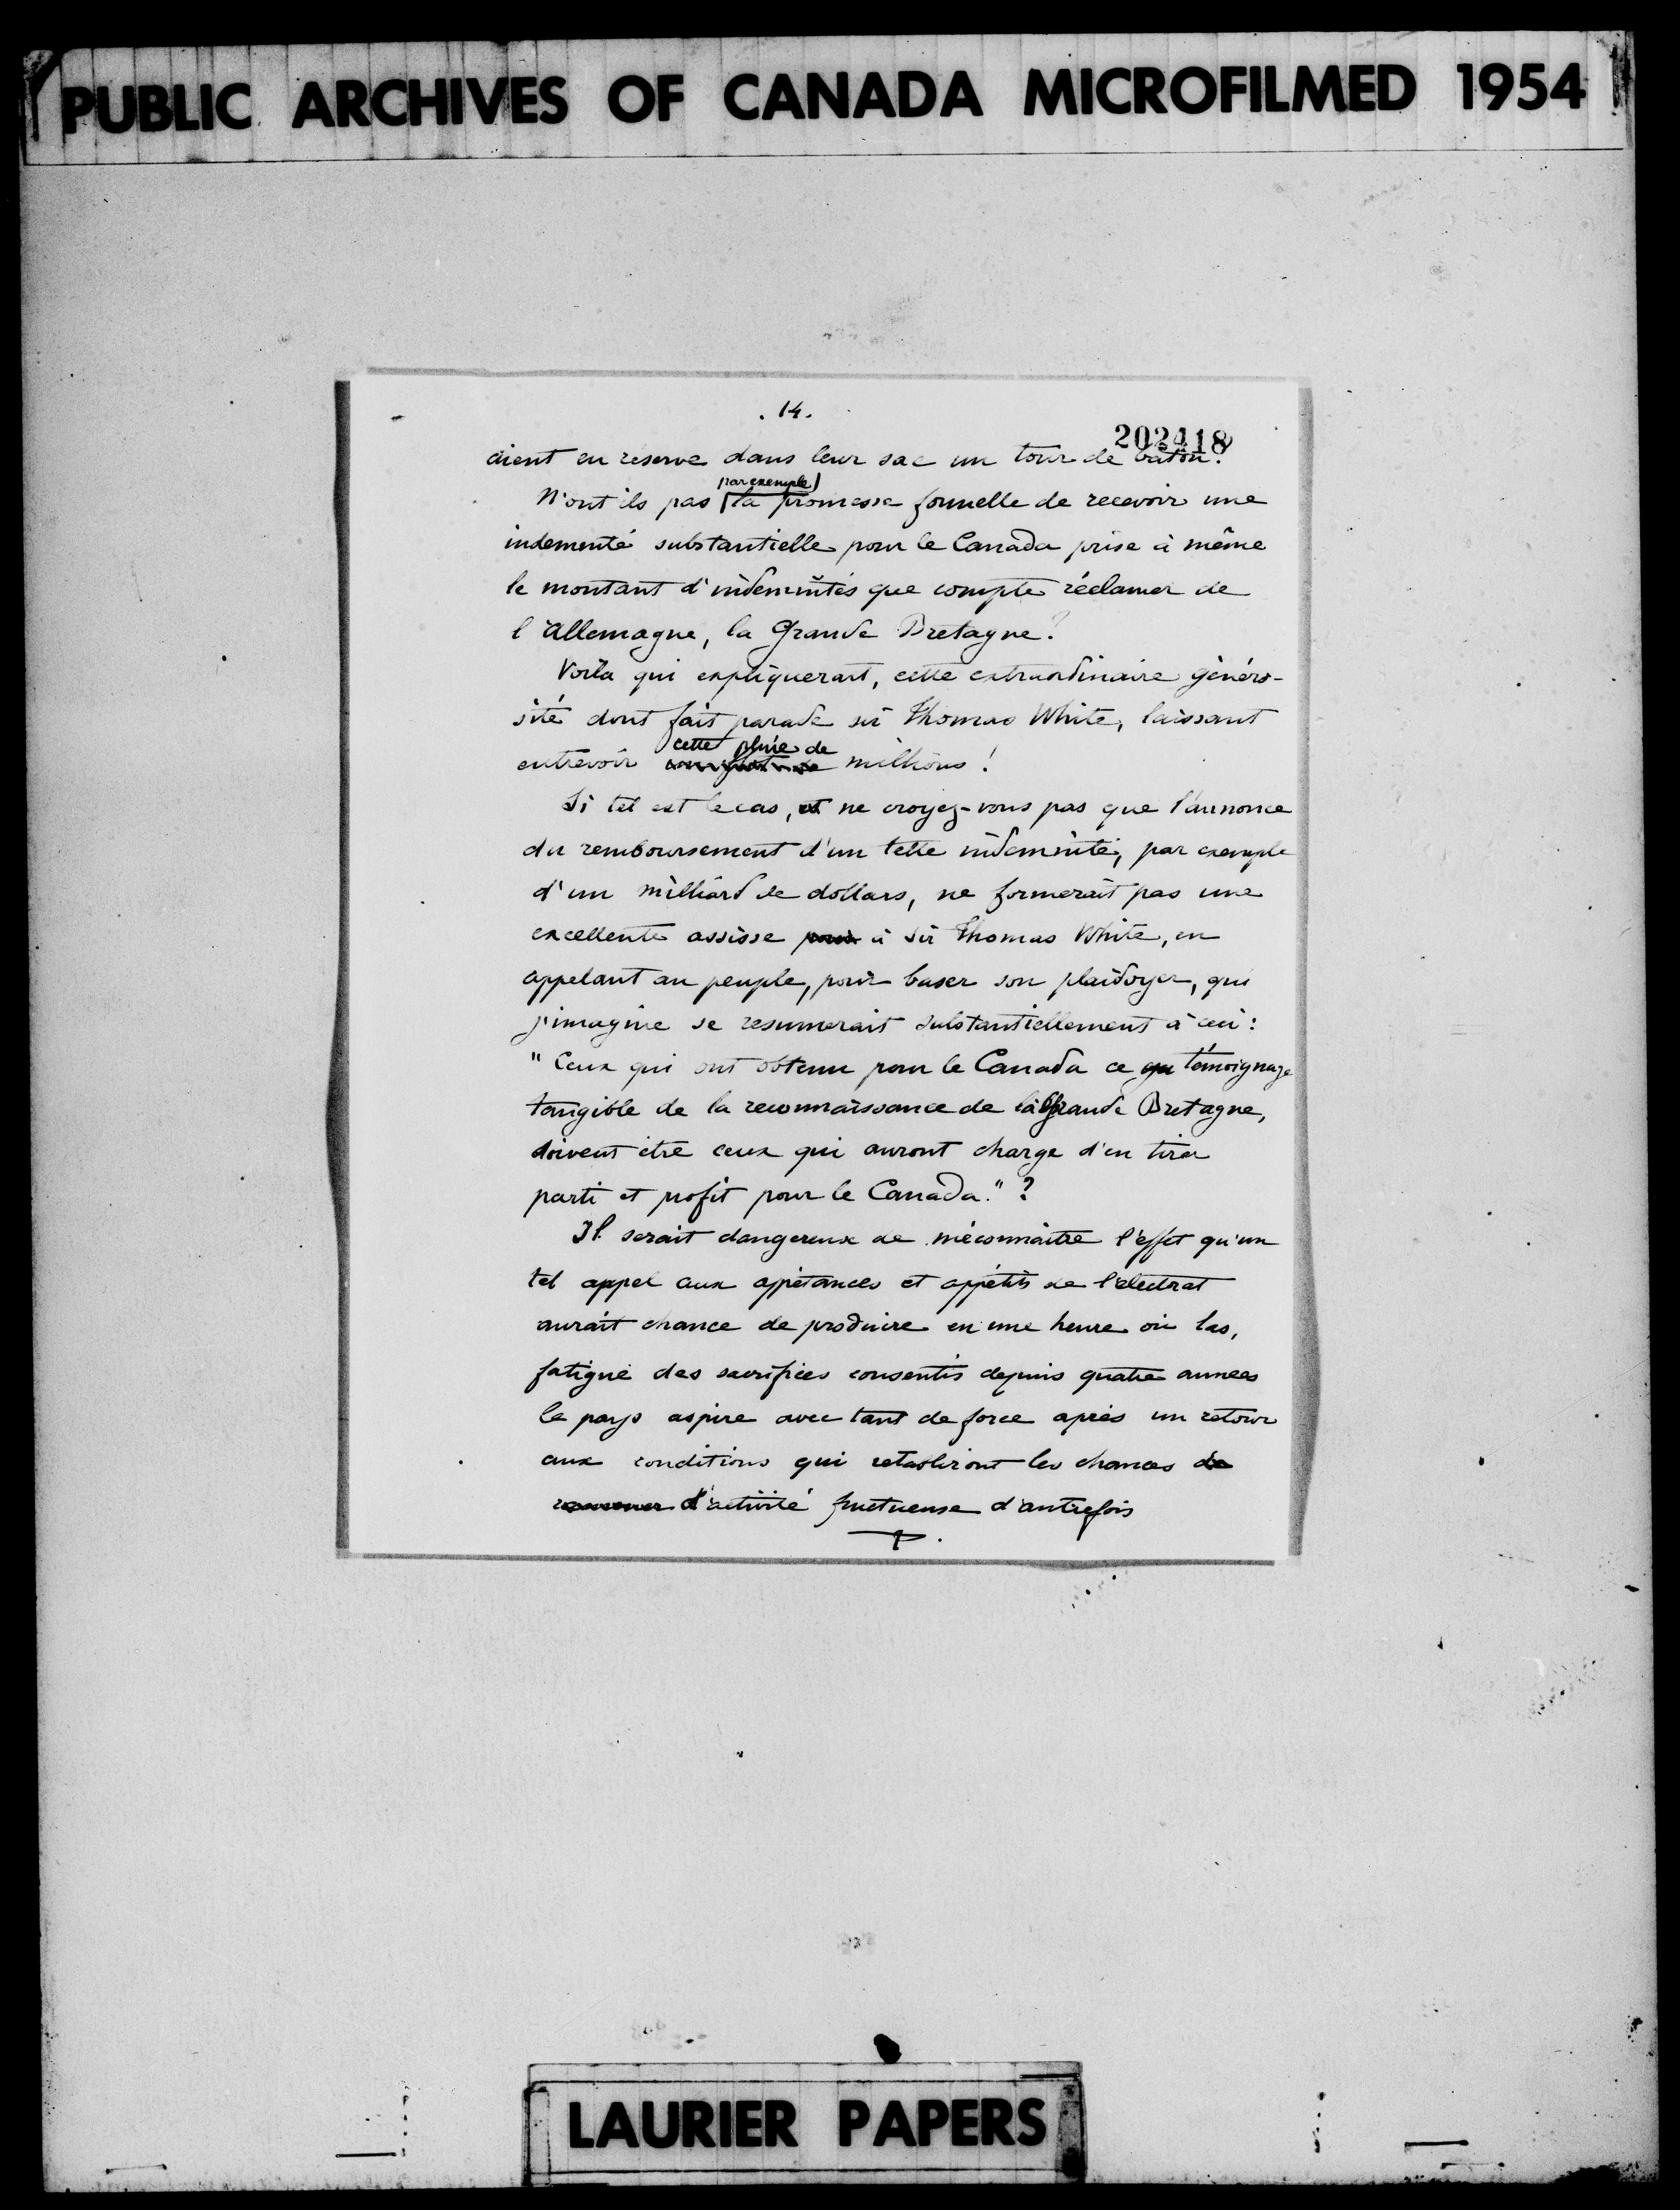 PUBLIC ARCHIVES OF CANADA MICROFILMED 1954
. 14.
202418
aient en réserve dans leur sac un tour de baton?
par exemple
N'ont ils pas la promesse formelle de recevoir une
indemnté substantielle pour le Canada prise à même
le montant d'indemnités que compte réclamer de
l'Allemagne, la Grande Bretagne?
Voila qui expliquerait, cette extraordinaire généro-
sité dont fait parade sir Thomas White, laissant
cette pluie de
entrevoir millions!
Si tel est le cas, et ne croyez-vous pas que l'annonce
du remboursement d'un telle indemnité, par exemple
d'un milliard de dollars, ne formerait pas une
excellente assisse pour à Sir Thomas White, en
appelant au peuple, pour baser son plaidoyer, qui
j'imagine se resumerait substantiellement à ceci:
"Ceux qui ont obtenu pour le Canada ce qu témoignage
tangible de la reconnaissance de la Grande Bretagne,
doivent être ceux qui auront charge d'en tirer
parti et profit pour le Canada."?
Il serait dangereux de méconnaître l'effet qu'un
tel appel aux appétances et appétits de l'électrat
aurait chance de produire en une heure où las,
fatigué des sacrifices consentis depuis quatre annees
le pays aspire avec tant de force après un retour
aux conditions qui retabliront les chances de
d'activité fructueuse d'autrefois
LAURIER PAPERS